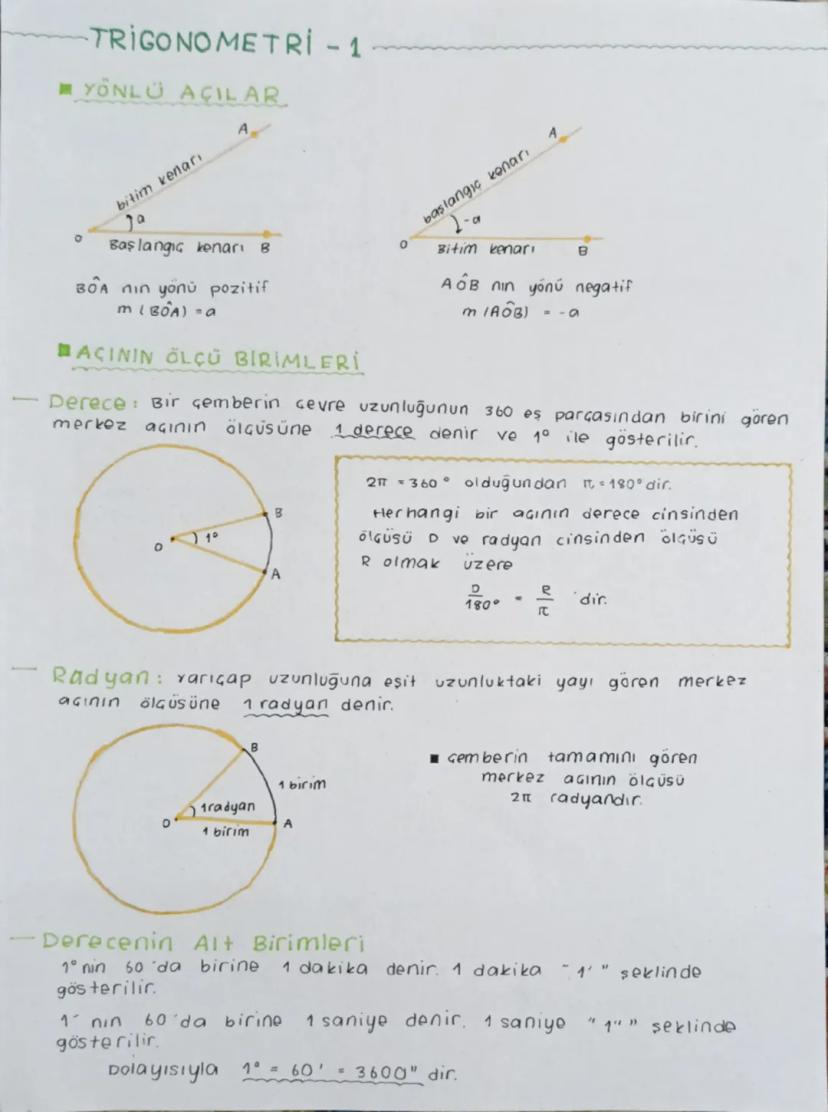 TRİGONOMETRİ - 1
YÖNLÜ AÇILAR
A
bitim kenarı
a
O
Başlangıç kenarı B
BÔA nın yönü pozitif
m (BÔA) = a
A
başlangıç kenarı
-a
O
Bitim kenarı B
AÔB nın yönü negatif
m (AÔB) = -a
AÇININ ÖLÇÜ BİRİMLERİ
Derece: Bir çemberin çevre uzunluğunun 360 eş parçasından birini gören
merkez açının ölçüsüne 1 derece denir ve 1° ile gösterilir.
B
O 1°
A
2π = 360° olduğundan π = 180° dir.
Herhangi bir açının derece cinsinden
ölçüsü D ve radyan cinsinden ölçüsü
R olmak üzere
D/180° = R/π 'dir.
Radyan: Yarıçap uzunluğuna eşit uzunluktaki yayı gören merkez
açının ölçüsüne 1 radyan denir.
B
1 birim
1 radyan
O A
1 birim
çemberin tamamını gören
merkez açının ölçüsü
2π radyandır.
Derecenin Alt Birimleri
1° nin 60 'da birine 1 dakika denir. 1 dakika " 1' " şeklinde
gösterilir.
1' nın 60 'da birine 1 saniye denir. 1 saniye " 1'' " şeklinde
gösterilir.
Dolayısıyla 1° = 60' = 3600'' dir.